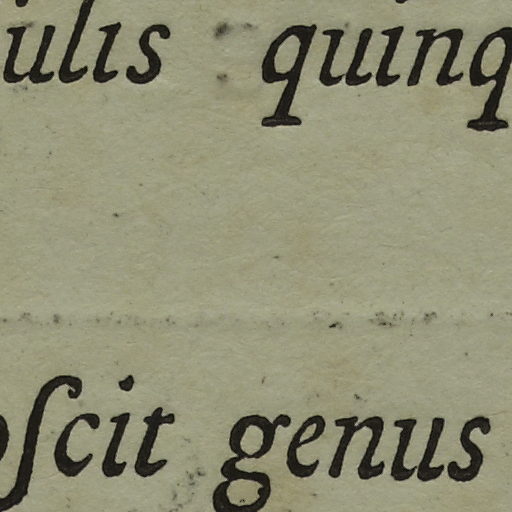 iulis quinq
oſcit genus